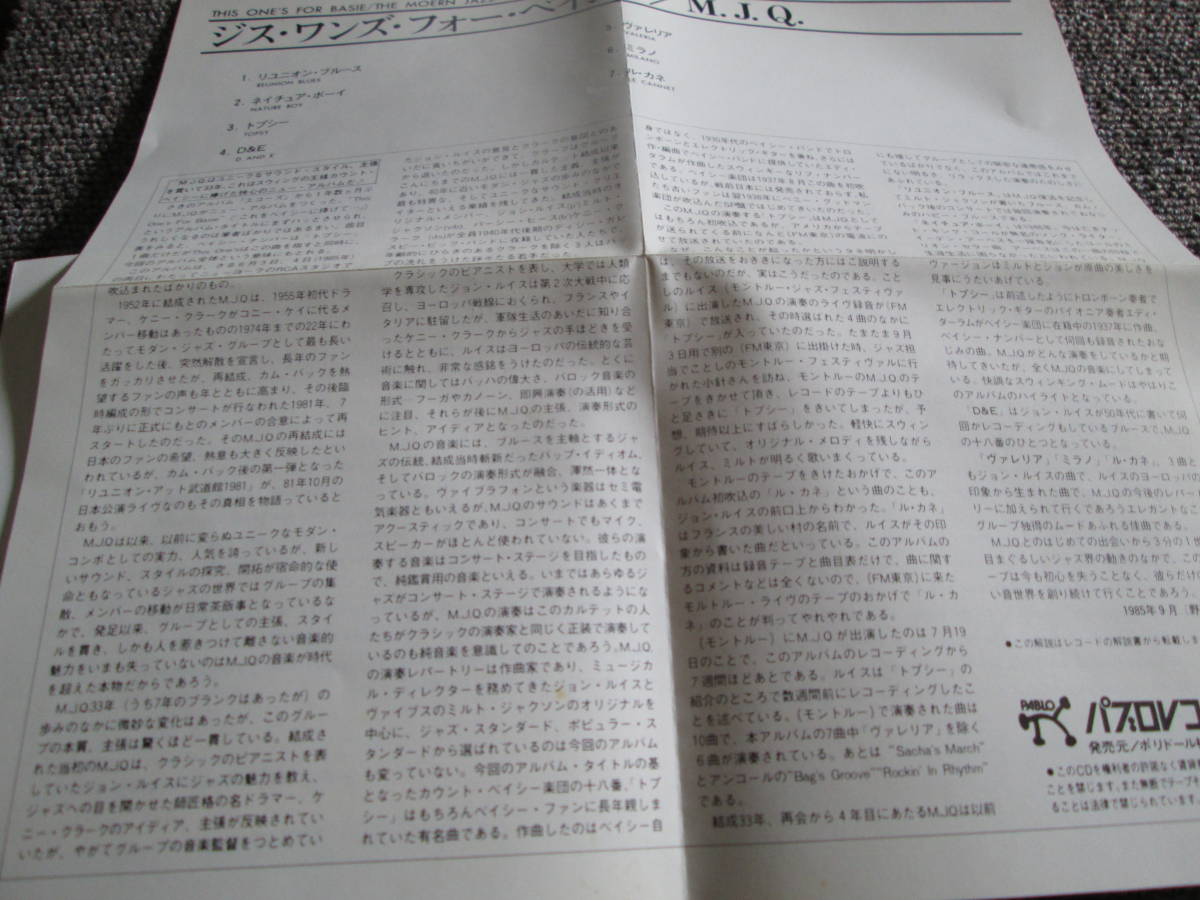 THIS ONE'S FOR BASIE/THE MOERN JAZZ
ジス・ワンズ・フォー・ベイシー／M.J.Q.
1. リユニオン・ブルース
REUNION BLUES
2. ネイチュア・ボーイ
NATURE BOY
3. トプシー
TOPSY
4. D&E
D AND E
5. ヴァレリア
VALERIA
6. ミラノ
MILANO
7. ル・カネ
LE CANNET
吹込まれたばかりのもの。
1952年に結成されたM.J.Q.は、1955年初代ドラ
マー、ケニー・クラークがコニー・ケイに代るメ
ンバー移動はあったものの1974年までの22年にわ
たってモダン・ジャズ・グループとして最も長い
活躍をした後、突然解散を宣言し、長年のファン
をガッカリさせたが、再結成、カム・バックを熱
望するファンの声も年とともに高まり、その後臨
時編成の形でコンサートが行なわれた1981年、7
年ぶりに正式にもとのメンバーの合意によって再
スタートしたのだった。そのM.J.Q.の再結成には
日本のファンの希望、熱意も大きく反映したとい
われているが、カム・バック後の第一弾となった
「リユニオン・アット武道館1981」が、81年10月の
日本公演ライヴなのもその真相を物語っていると
おもう。
M.J.Q.は以来、以前に変らぬユニークなモダン・
コンボとしての実力、人気を誇っているが、新し
いサウンド、スタイルの探究、開拓が宿命的な使
命ともなっているジャズの世界ではグループの集
散、メンバーの移動が日常茶飯事となっているな
かで、発足以来、グループとしての主張、スタイ
ルを貫き、しかも人を惹きつけて離さない音楽的
魅力をいまも失っていないのはM.J.Q.の音楽が時代
を超えた本物だからであろう。
M.J.Q.33年（うち7年のブランクはあったが）の
歩みのなかに微妙な変化はあったが、このグルー
プの本質、主張は驚くほど一貫している。結成さ
れた当初のM.J.Q.は、クラシックのピアニストを表
していたジョン・ルイスにジャズの魅力を教え、
ジャズへの目を開かせた師匠格の名ドラマー、ケ
ニー・クラークのアイディア、主張が反映されてい
いたが、やがてグループの音楽監督をつとめてい
クラシックのピアニストを表し、大学では人類
学を専攻したジョン・ルイスは第2次大戦中に応
召し、ヨーロッパ戦線におくられ、フランスやイ
タリアに駐留したが、軍隊生活のあいだに知り合
ったケニー・クラークからジャズの手ほどきを受
けるとともに、ルイスはヨーロッパの伝統的な芸
術に触れ、非常な感銘をうけたのだった。とくに
音楽に関してはバッハの偉大さ、バロック音楽の
形式―フーガやカノーン、即興演奏（の活用）など
に注目、それらが後にM.J.Q.の主張、演奏形式の
ヒント、アイディアとなったのだった。
M.J.Q.の音楽には、ブルースを主軸とするジャ
ズの伝統、結成当時斬新だったバップ・イディオム、
そしてバロックの演奏形式が融合、渾然一体とな
っている。ヴァイブラフォンという楽器はセミ電
気楽器ともいえるが、M.J.Q.のサウンドはあくまで
アクースティックであり、コンサートでもマイク、
スピーカーがほとんど使われていない。彼らの演
奏する音楽はコンサート・ステージを目指したもの
で、純鑑賞用の音楽といえる。いまではあらゆるジ
ャズがコンサート・ステージで演奏されるようにな
っているが、M.J.Q.の演奏はこのカルテットの人
たちがクラシックの演奏家と同じく正装で演奏して
いるのも純音楽を意識してのことであろう。M.J.Q.
の演奏レパートリーは作曲家であり、ミュージカ
ル・ディレクターを務めてきたジョン・ルイスと
ヴァイブスのミルト・ジャクソンのオリジナルを
中心に、ジャズ・スタンダード、ポピュラー・ス
タンダードから選ばれているのは今回のアルバム
も変っていない。今回のアルバム・タイトルの基
となったカウント・ベイシー楽団の十八番、「トプ
シー」はもちろんベイシー・ファンに長年親しま
れていた有名曲である。作曲したのはベイシー自
身ではなく、1930年代のベイシー・バンドでトロ
ンボーンとエレクトリック・ギターを兼ね、さらには
は、その放送をおききになった方にはご説明する
までもないのだが、実はこうだったのである。こと
しのルイス（モントルー・ジャズ・フェスティヴァ
ル）に出演したM.J.Q.の演奏のライヴ録音が（FM
東京）で放送され、その時選ばれた4曲のなかに
「トプシー」が入っていたのだった。たまたま9月
3日用で別の（FM東京）に出掛けた時、ジャズ担
当でことしのモントルー・フェスティヴァルに行
かれた小針さんを訪ね、モントルーのM.J.Q.のテ
ープをきかせて頂き、レコードのテープよりもひ
と足さきに「トプシー」をきいてしまったが、予
想、期待以上にすばらしかった。軽快にスウィン
グしていて、オリジナル・メロディを残しながら
ルイス、ミルトが明るく歌いまくっている。
モントルーのテープをきけたおかげで、このア
ルバム初吹込の「ル・カネ」という曲のことも、
ジョン・ルイスの前口上からわかった。「ル・カネ」
はフランスの美しい村の名前で、ルイスがその印
象から書いた曲だといっている。このアルバムの
方の資料は録音テープと曲目表だけで、曲に関す
るコメントなどは全くないので、（FM東京）に来た
モルトルー・ライヴのテープのおかげで「ル・カ
ネ」のことが判ってやれやれである。
（モントルー）にM.J.Q.が出演したのは7月19
日のことで、このアルバムのレコーディングから
7週間ほどあとである。ルイスは「トプシー」の
紹介のところで数週間前にレコーディングしたこ
とを述べている。（モントルー）で演奏された曲は
10曲で、本アルバムの7曲中「ヴァレリア」を除く
6曲が演奏されている。あとは"Sacha's March"
とアンコールの"Bag's Groove""Rockin' In Rhythm"
である。
結成33年、再会から4年目にあたるM.J.Q.は以前
ヴァージョンはミルトとジョンが原曲の美しさを
見事にうたいあげている。
「トプシー」は前述したようにトロンボーン奏者で
エレクトリック・ギターのパイオニア奏者エディ・
ダーラムがベイシー楽団に在籍中の1937年に作曲、
ベイシー・ナンバーとして何回も録音されたおな
じみの曲。M.J.Q.がどんな演奏をしているかと期
待してきいたが、全くM.J.Q.の音楽にしてしまって
いる。快調なスウィンキング・ムードはやはりこ
のアルバムのハイライトとなっている。
「D&E」はジョン・ルイスが50年代に書いて何
回かレコーディングもしているブルースで、M.J.Q.
の十八番のひとつとなっている。
「ヴァレリア」「ミラノ」「ル・カネ」、3曲と
もジョン・ルイスの曲で、ルイスのヨーロッパの
印象から生まれた曲で、M.J.Q.の今後のレパー
リーに加えられて行くであろうエレガントなこ
グループ独得のムードあふれる佳曲である。
M.J.Q.とのはじめての出会いから3分の1世
目まぐるしいジャズ界の動きのなかで、この
ープは今も初心を失うことなく、彼らだけの
い音世界を創り続けて行くことであろう。
1985年9月〔野
●この解説はレコードの解説書から転載しま
PABLO
パブロレコ
発売元／ポリドール
●このCDを権利者の許諾なく賃貸業
ことを禁じます。また無断でテープそ
ることは法律で禁じられています。